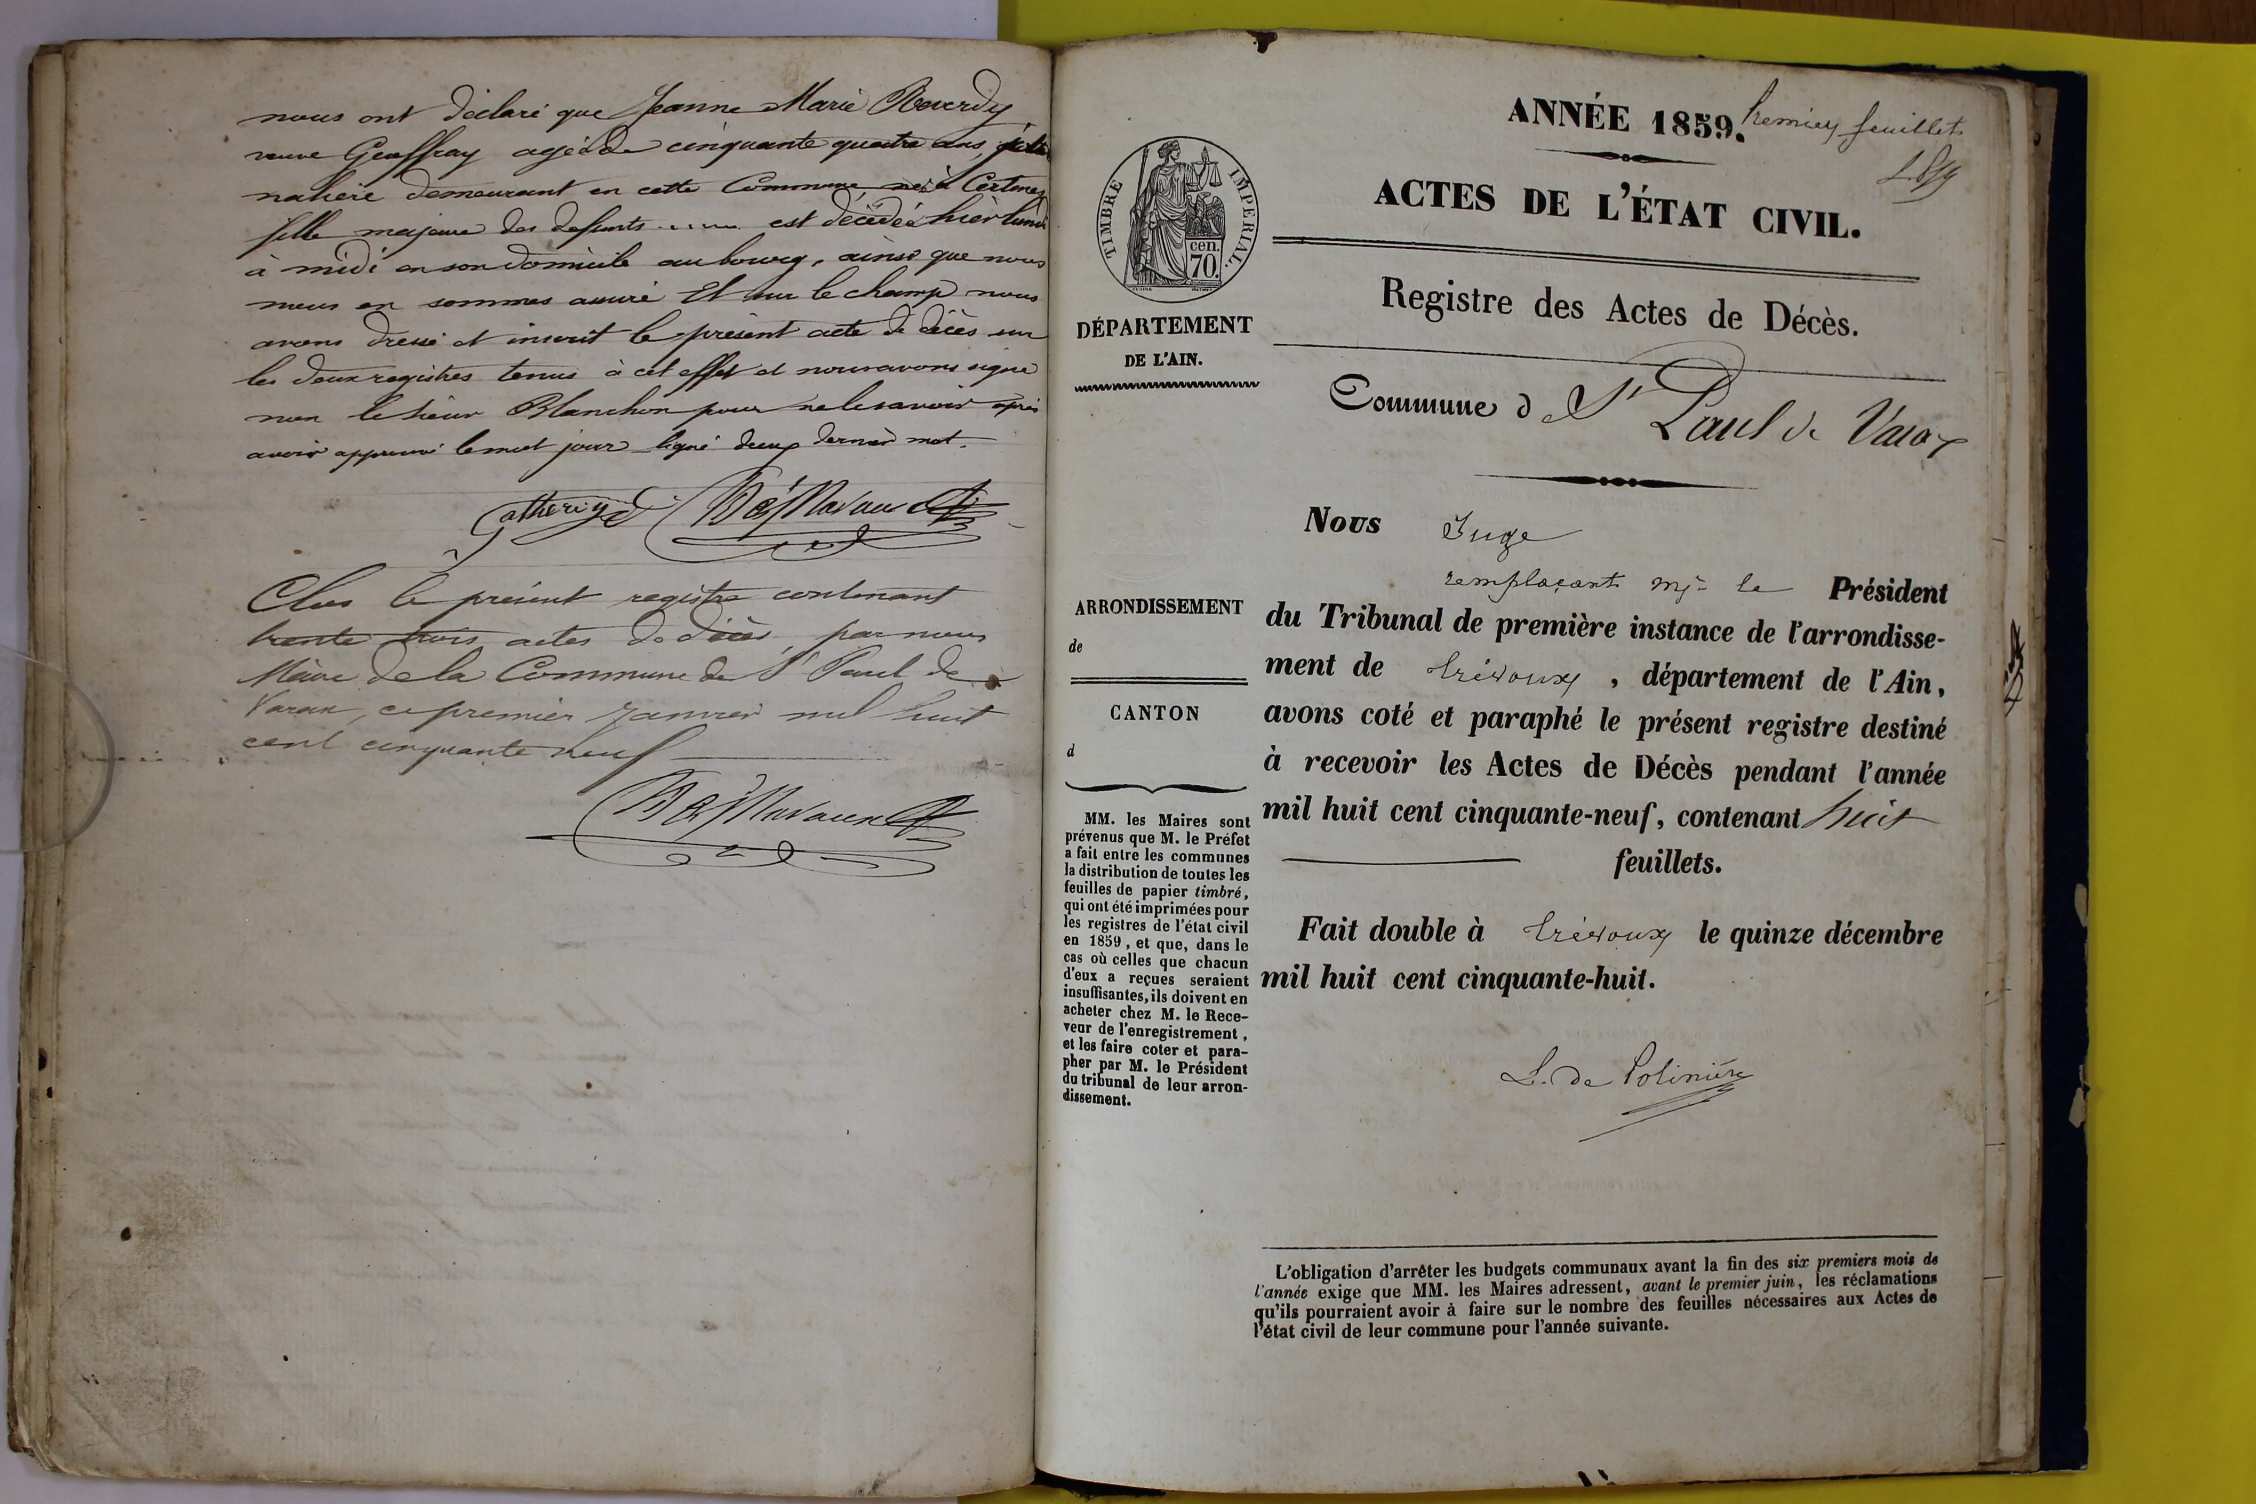 nous ont déclaré que Jeanne Marie Reverdy
veuve Geoffray agée de cinquante quatre ans, jour
nalière demeurant en cette Commune née à Certines
fille majeure des defunts ..... est décédée hier lundi
à midi en son domicile au bourg, ainsi que nous
nous en sommes assuré Et sur le champ nous
avons dressé et inscrit le présent acte de décès sur
les deux registres tenus à cet effet et nous avons signé
non le sieur Blanchon pour ne le savoir après
avoir approuvé le mot jour ligne deux dernier mot.
Clos le présent registre contenant
trente trois actes de décès, par nous
Maire de la Commune de St Paul de
Varax, ce premier Janvier mil huit
cent cinquante neuf
ANNÉE 1859.
Premier feuillet
ACTES DE L'ÉTAT CIVIL.
TIMBRE IMPERIAL.
cen.
70.
Registre des Actes de Décès.
DÉPARTEMENT
DE L'AIN.
Commune d St Paul de Varax
Nous Juge
remplaçant Mr le Président
du Tribunal de première instance de l'arrondisse-
ment de Trévoux, département de l'Ain,
avons coté et paraphé le présent registre destiné
à recevoir les Actes de Décès pendant l'année
mil huit cent cinquante-neuf, contenant huit
feuillets.
Fait double à Trévoux le quinze décembre
mil huit cent cinquante-huit.
L. de Polinière
ARRONDISSEMENT
de
CANTON
d
MM. les Maires sont
prévenus que M. le Préfet
a fait entre les communes
la distribution de toutes les
feuilles de papier timbré,
qui ont été imprimées pour
les registres de l'état civil
en 1859, et que, dans le
cas où celles que chacun
d'eux a reçues seraient
insuffisantes, ils doivent en
acheter chez M. le Rece-
veur de l'enregistrement,
et les faire coter et para-
pher par M. le Président
du tribunal de leur arron-
dissement.
L'obligation d'arrêter les budgets communaux avant la fin des six premiers mois de
l'année exige que MM. les Maires adressent, avant le premier juin, les réclamations
qu'ils pourraient avoir à faire sur le nombre des feuilles nécessaires aux Actes de
l'état civil de leur commune pour l'année suivante.